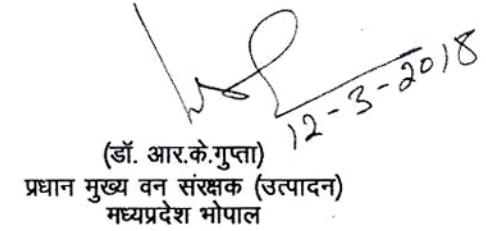 12-3-2018
(डॉ. आर.के.गुप्ता)
प्रधान मुख्य वन संरक्षक (उत्पादन)
मध्यप्रदेश भोपाल